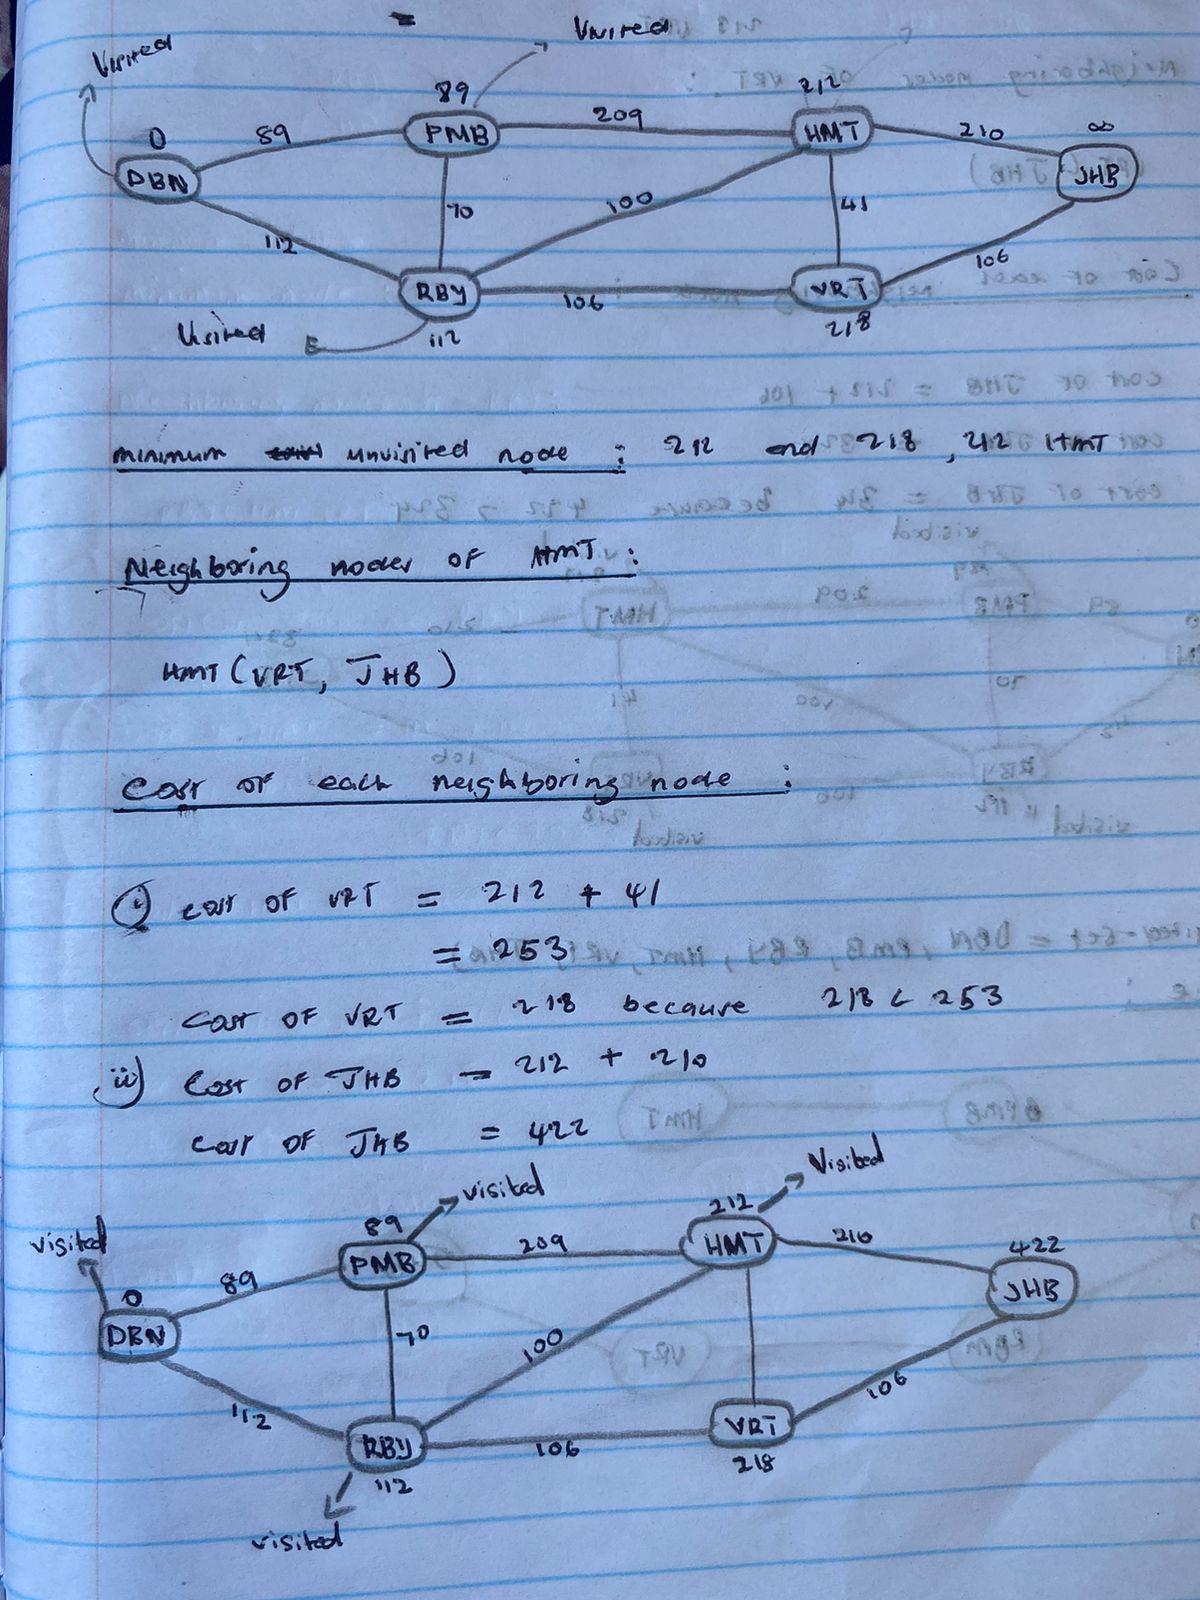 Visited
Visited
0
89
89
PMB
209
212
HMT
210
∞
JHB
DBN
112
70
100
41
106
RBY
106
VRT
Visited
112
218
minimum unvisited node : 212 and 218 , 212 HMT
Neighboring nodes of HMT :
HMT (VRT, JHB)
Cost of each neighboring node :
i) cost of VRT = 212 + 41
= 253
Cost of VRT = 218 because 218 < 253
ii) Cost of JHB = 212 + 210
Cost of JHB = 422
visited
visited
Visited
0
89
89
PMB
209
212
HMT
210
422
JHB
DBN
112
70
100
106
RBY
106
VRT
112
218
visited